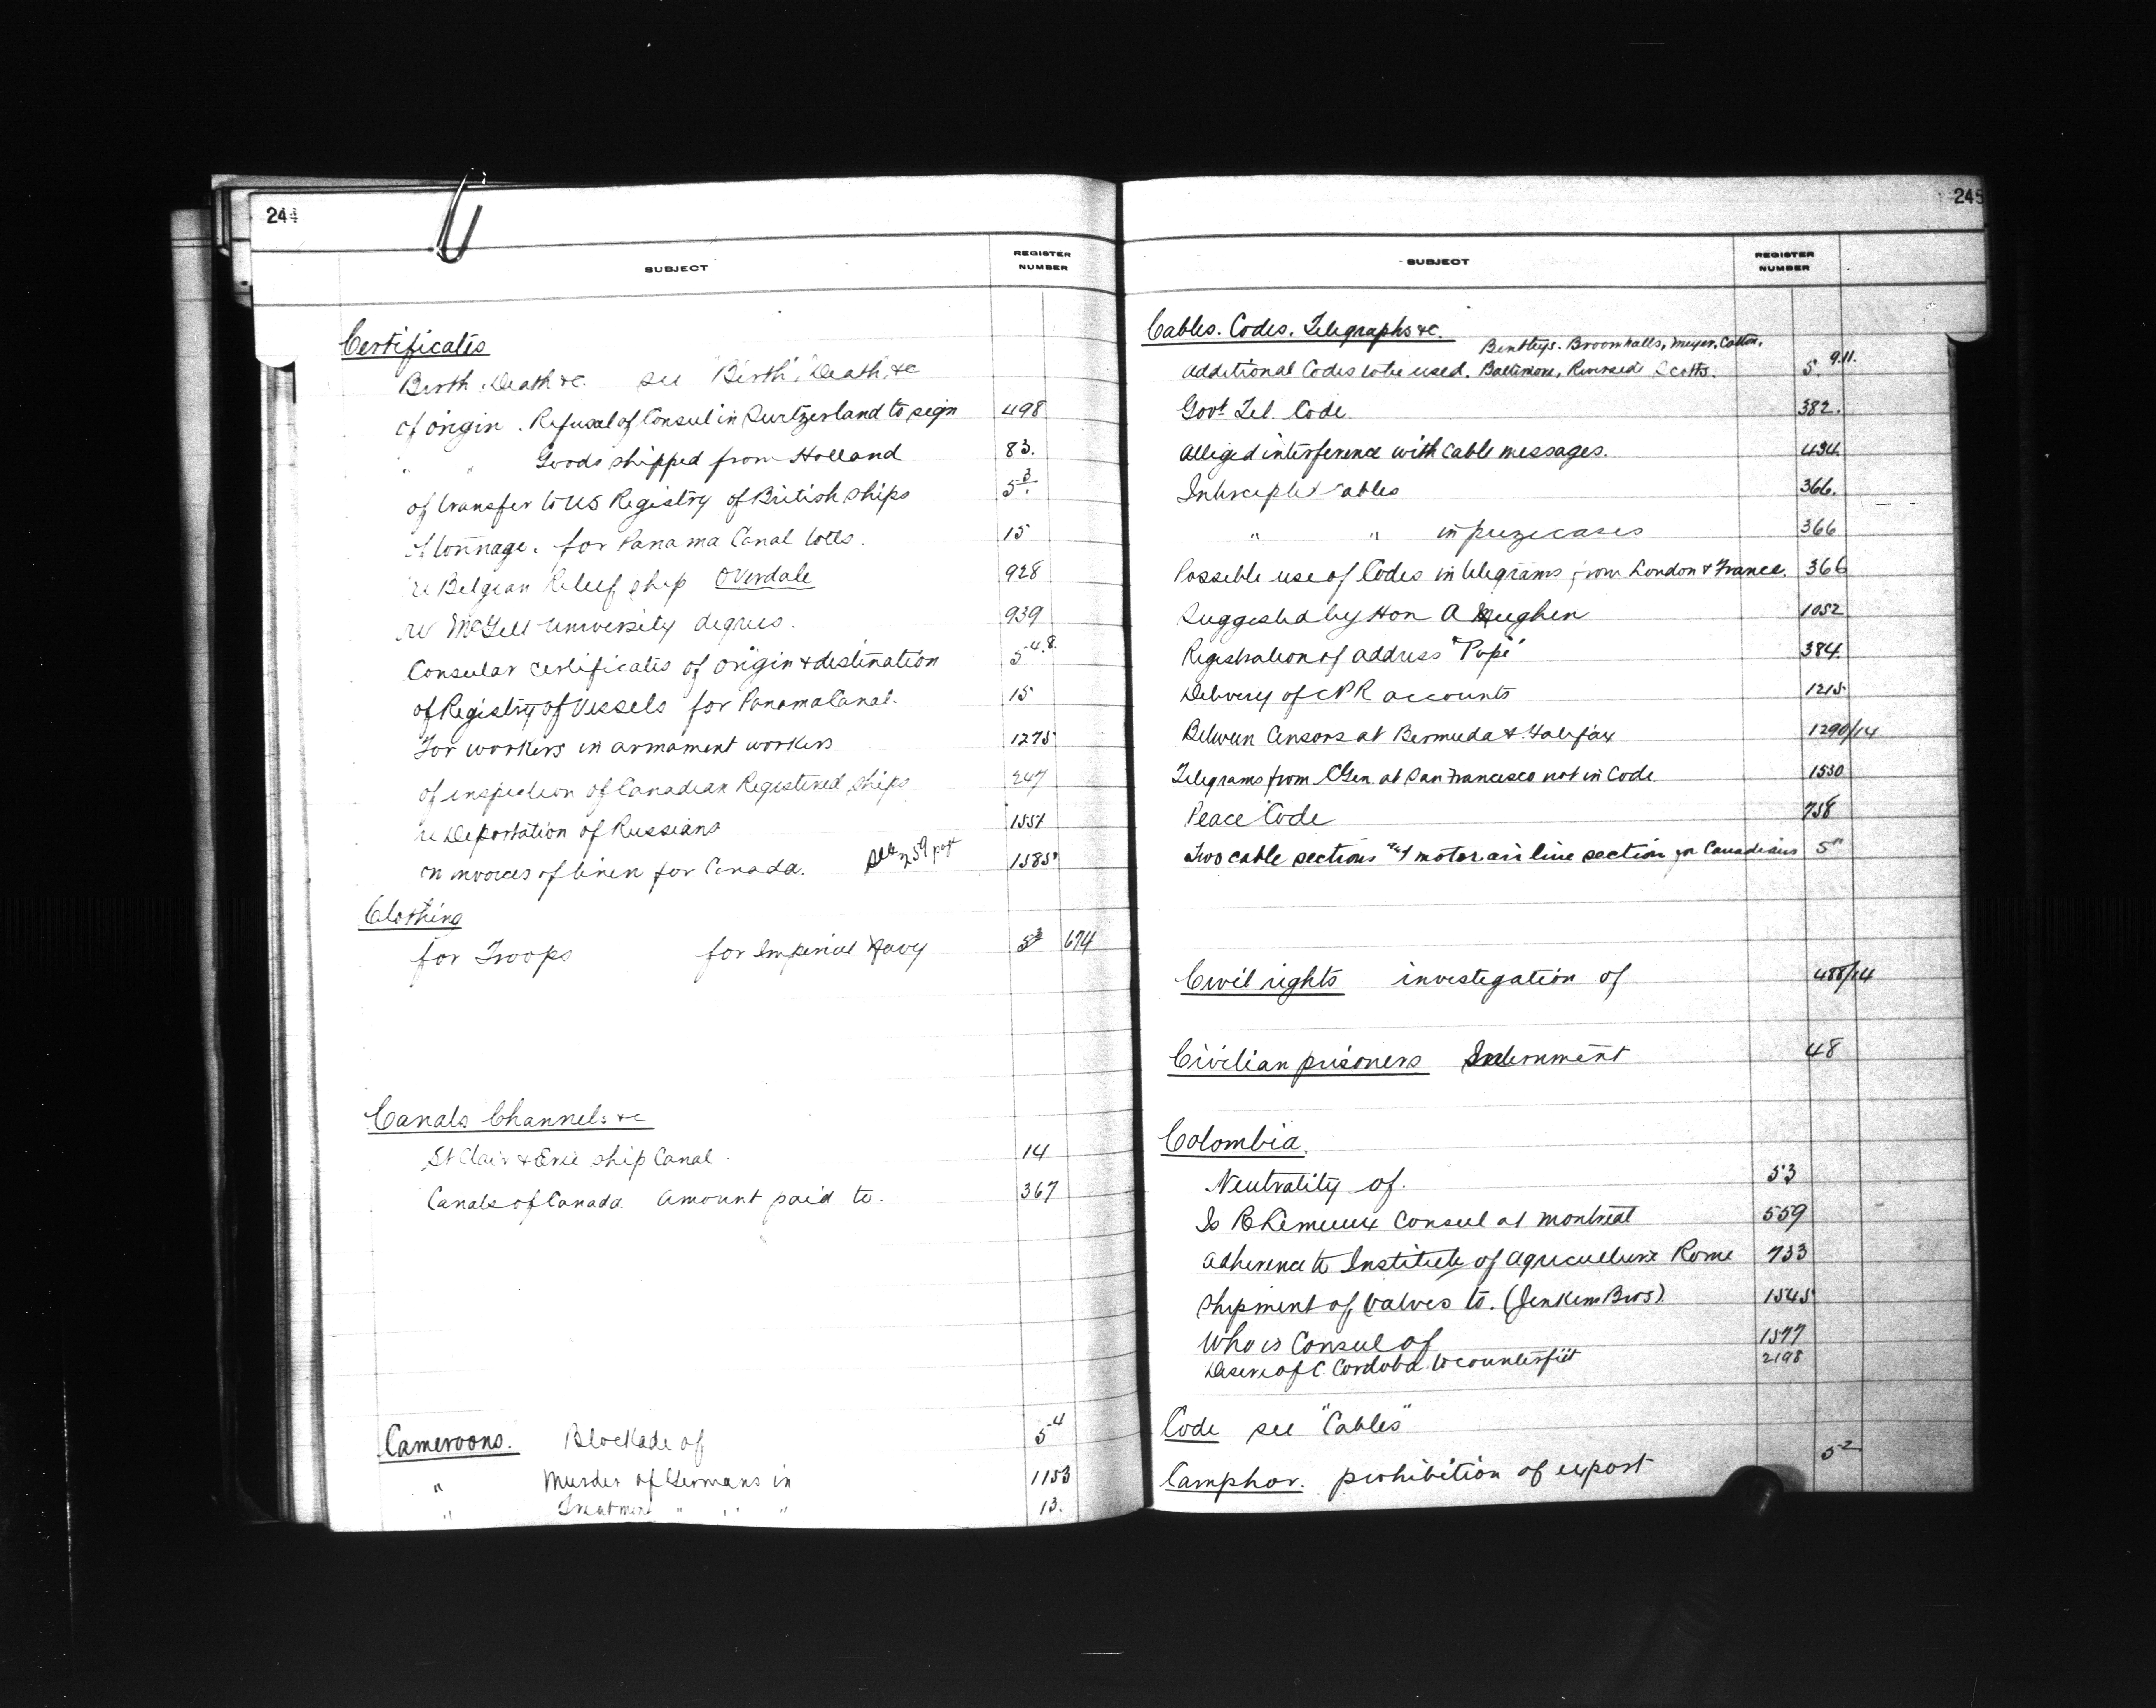 244
SUBJECT REGISTER NUMBER
Certificates
Birth, Death &c. see "Birth", "Death", &c
of origin. Refusal of Consul in Switzerland to sign 498
" " Goods shipped from Holland 83.
of transfer to US Registry of British ships 5 3.
of tonnage. for Panama Canal tolls. 15
re Belgian Relief ship Overdale 928
re McGill University degrees. 939
Consular certificates of origin & destination 5 4.8.
of Registry of Vessels for Panama Canal. 15
For workers in armament workers 1275
of inspection of Canadian Registered ships 247
re Deportation of Russians 1551
on invoices of linen for Canada. see 259 page 1585
Clothing
for Troops for Imperial Navy 5 674
Canals Channels &c
St Clair & Erie ship Canal. 14
Canals of Canada. Amount paid to. 367
Cameroons. Blockade of 5 4
" Murder of Germans in 1153
" Treatment " " " 13.
245
SUBJECT REGISTER NUMBER
Cables. Codes. Telegraphs &c.
Bentleys. Broomhalls, Meyer. Cotton,
additional Codes to be used. Baltimore, Riverside Scotts. 5. 9.11.
Govt Tel. Code 382.
Alleged interference with cable messages. 434.
Intercepted Cables 366.
" " in prize cases 366
Possible use of Codes in telegrams from London & France. 366
Suggested by Hon A Meighen 1052
Registration of address "Pope" 384.
Delivery of CPR accounts 1215
Between Censors at Bermuda & Halifax 1290/14
Telegrams from CGen. at San Francisco not in Code. 1530
Peace Code 758
Two cable sections & 1 motor air line section for Canadians 5 11
Civil rights investigation of 488/14
Civilian prisoners Internment 48
Colombia.
Neutrality of. 53
Is Consul at Montreal 559
Adherence to Institute of Agriculture Rome 733
Shipment of valves to. (Jenkins Bros). 1545
Who is Consul of 1577
Desire of C. Cordoba to counterfeit 2198
Code see "Cables"
Camphor. prohibition of export 5 2